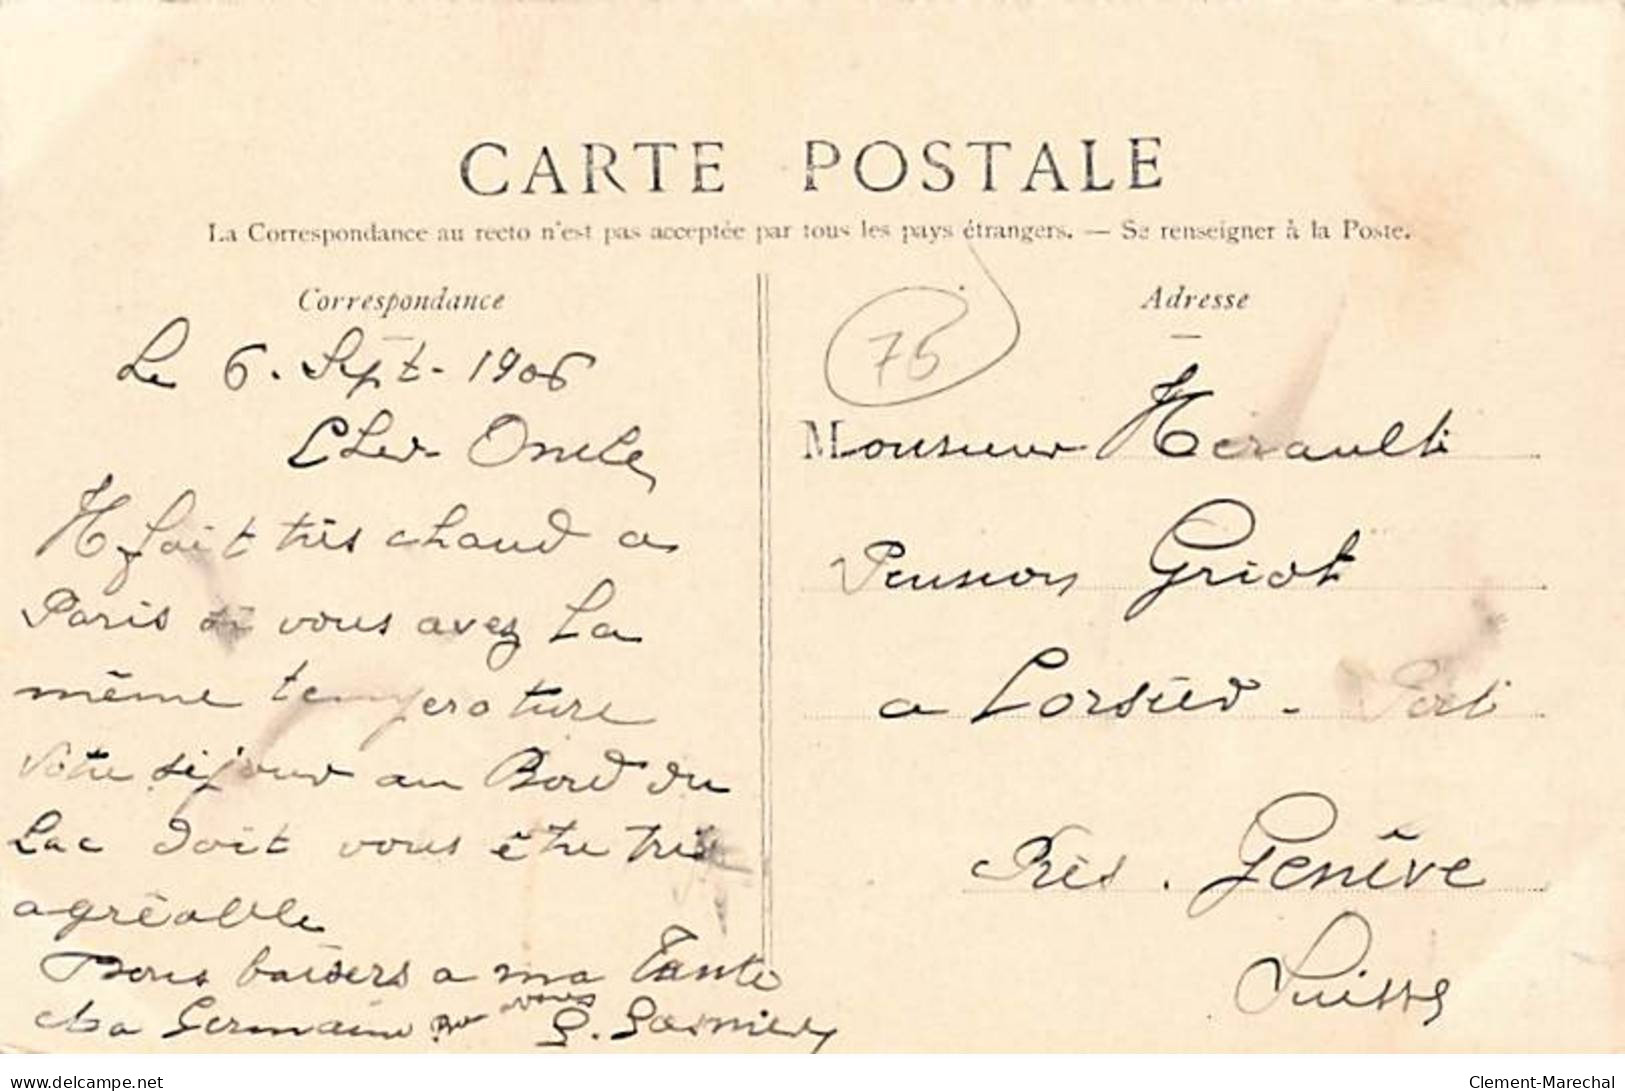 CARTE POSTALE
La Correspondance au recto n'est pas acceptée par tous les pays étrangers. — Se renseigner à la Poste.
Correspondance
Le 6. Sept. 1906
Cher Oncle
Il fait très chaud a
Paris si vous avez la
même temperature
votre séjour au Bord du
Lac doit vous être très
agréable
Bons baisers a ma Tante
a Germaine vous
G. Gasnier
75
Adresse
Monsieur Herault
Pension Griot
a Corsier - Port
Près. Genêve
Suisse
delcampe.net
Clement-Marechal